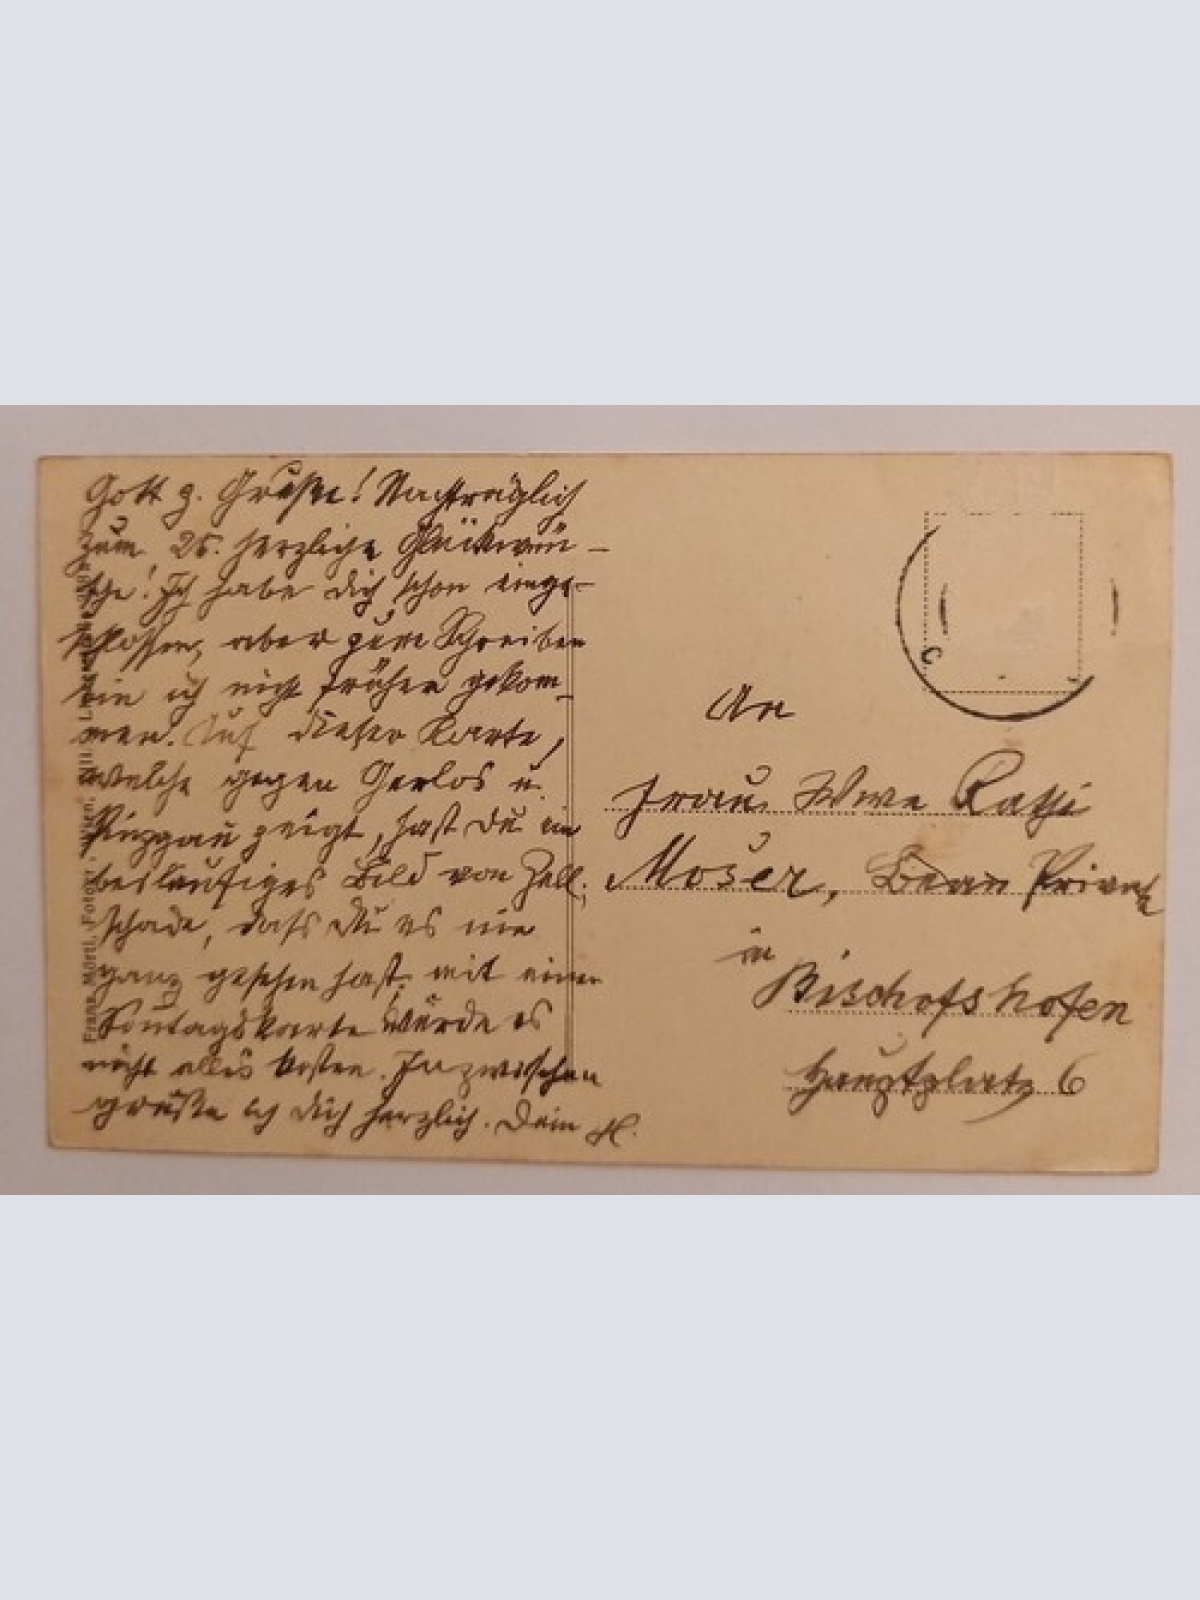 Gott z. Gruße! Nachträglich
zum 25. herzliche Glückwün-
sche! Ich habe dich schon einge-
schlossen, aber zum Schreiben
bin ich nicht früher gekom-
men. Auf dieser Karte,
welche gegen Gerlos u.
Pinzgau zeigt, hast Du ein
beiläufiges Bild von Zell;
schade, dass Du es nie
ganz gesehen hast; mit einer
Sontagskarte würde es
nicht alles kosten. Inzwischen
grüße ich Dich herzlich. Dein H.
Franz Mörtl, Fotograf, Wien
An
Frau Wwe Kathi
Moser, Private
in
Bischofshofen
Hauptplatz 6